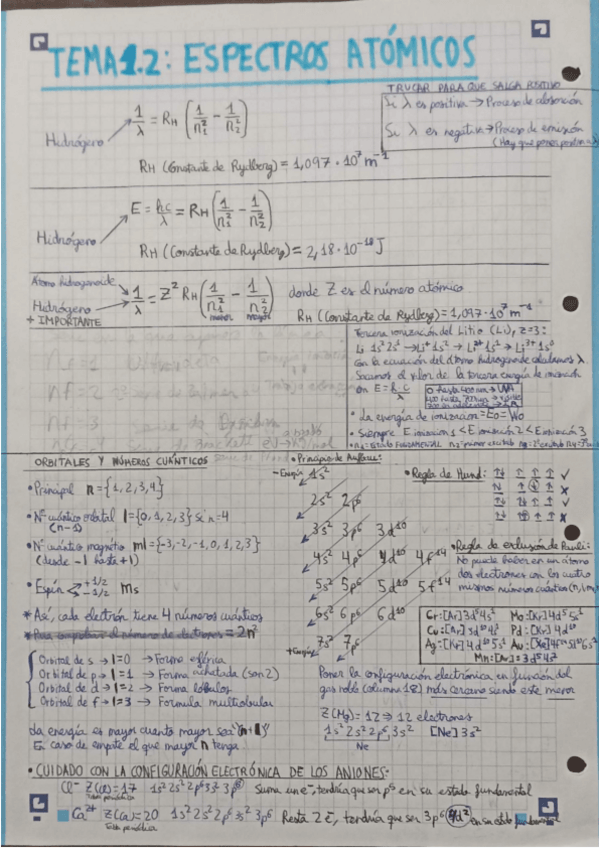 TEMA 1.2: ESPECTROS ATÓMICOS
TRUCAR PARA QUE SALGA POSITIVO
Si λ es positiva → Proceso de absorción
Si λ es negativa → Proceso de emisión
(Hay que poner positiva)
Hidrógeno
1/λ = RH (1/n1² - 1/n2²)
RH (Constante de Rydberg) = 1,097·10⁷ m⁻¹
Hidrógeno
E = hc/λ = RH (1/n1² - 1/n2²)
RH (Constante de Rydberg) = 2,18·10⁻¹⁸ J
Átomo hidrogenoide
Hidrógeno
+ IMPORTANTE
1/λ = Z² RH (1/n1² - 1/n2²) donde Z es el número atómico
menor mayor
RH (Constante de Rydberg) = 1,097·10⁷ m⁻¹
Tercera ionización del Litio (Li), z=3:
Li 1s² 2s¹ → Li⁺ 1s² → Li²⁺ 1s¹ → Li³⁺ 1s⁰
Con la ecuación del átomo hidrogenoide calculamos λ
Sacamos el valor de la tercera energía de ionización
con E = h·c/λ
• La energía de ionización = Eo = Wo
• Siempre E ionización 1 < E ionización 2 < E ionización 3
ORBITALES Y NÚMEROS CUÁNTICOS
• Principal n = {1,2,3,4}
• Nº cuántico orbital l = {0,1,2,3} si n=4
(n-1)
• Nº cuántico magnético ml = {-3,-2,-1,0,1,2,3}
(desde -l hasta +l)
• Espín +1/2 -1/2 ms
* Así, cada electrón tiene 4 números cuánticos
Orbital de s → l=0 → Forma esférica
Orbital de p → l=1 → Forma achatada (son 2)
Orbital de d → l=2 → Forma lóbulos
Orbital de f → l=3 → Formula multilobular
La energía es mayor cuanto mayor sea "(n+l)"
En caso de empate el que mayor n tenga
• Principio de Aufbau:
-Energía 1s²
2s² 2p⁶
3s² 3p⁶ 3d¹⁰
4s² 4p⁶ 4d¹⁰ 4f¹⁴
5s² 5p⁶ 5d¹⁰ 5f¹⁴
6s² 6p⁶ 6d¹⁰
+Energía 7s² 7p⁶
• Regla de Hund:
• Regla de exclusión de Pauli:
No puede haber en un átomo
dos electrones con los cuatro
mismos números cuánticos (n,l,m
Cr: [Ar] 3d⁵ 4s¹ Mo: [Kr] 4d⁵ 5s¹
Cu: [Ar] 3d¹⁰ 4s¹ Pd: [Kr] 4d¹⁰
Ag: [Kr] 4d¹⁰ 5s¹ Au: [Xe] 4f¹⁴ 5d¹⁰ 6s¹
Mn: [Ar] 3d⁵ 4s²
Poner la configuración electrónica en función del
gas noble (columna 18) más cercano siendo este menor
Z(Mg) = 12 → 12 electrones
1s² 2s² 2p⁶ 3s² [Ne] 3s²
Ne
• CUIDADO CON LA CONFIGURACIÓN ELECTRÓNICA DE LOS ANIONES:
Cl⁻ Z(Cl) = 17 1s² 2s² 2p⁶ 3s² 3p⁶ Suma un e⁻, tendría que ser p⁵ en su estado fundamental
Tabla periódica
Ca²⁺ Z(Ca) = 20 1s² 2s² 2p⁶ 3s² 3p⁶ Resta 2 e⁻, tendría que ser 3p⁶ en su estado fundamental
Tabla periódica